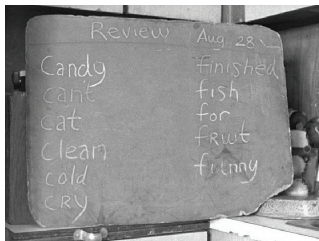 Review Aug. 28
Candy
cant
cat
Clean
cold
cry
finished
fish
for
fruit
funny